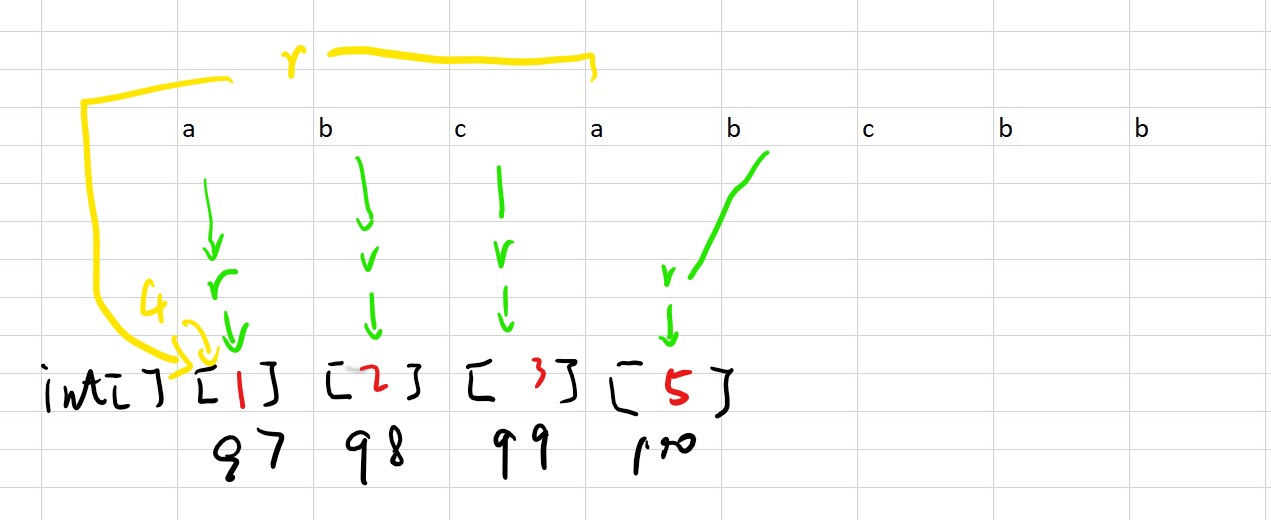 r
a b c a b c b b
r r r r
4
int[] [1] [2] [3] [5]
97 98 99